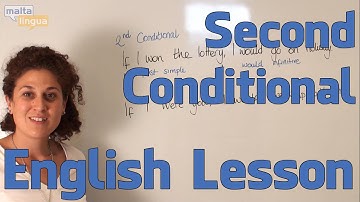 malta
lingua
Second
Conditional
English Lesson
2nd Conditional
If I won the lottery, I would go on holiday
simple would infinitive
If I were you, I